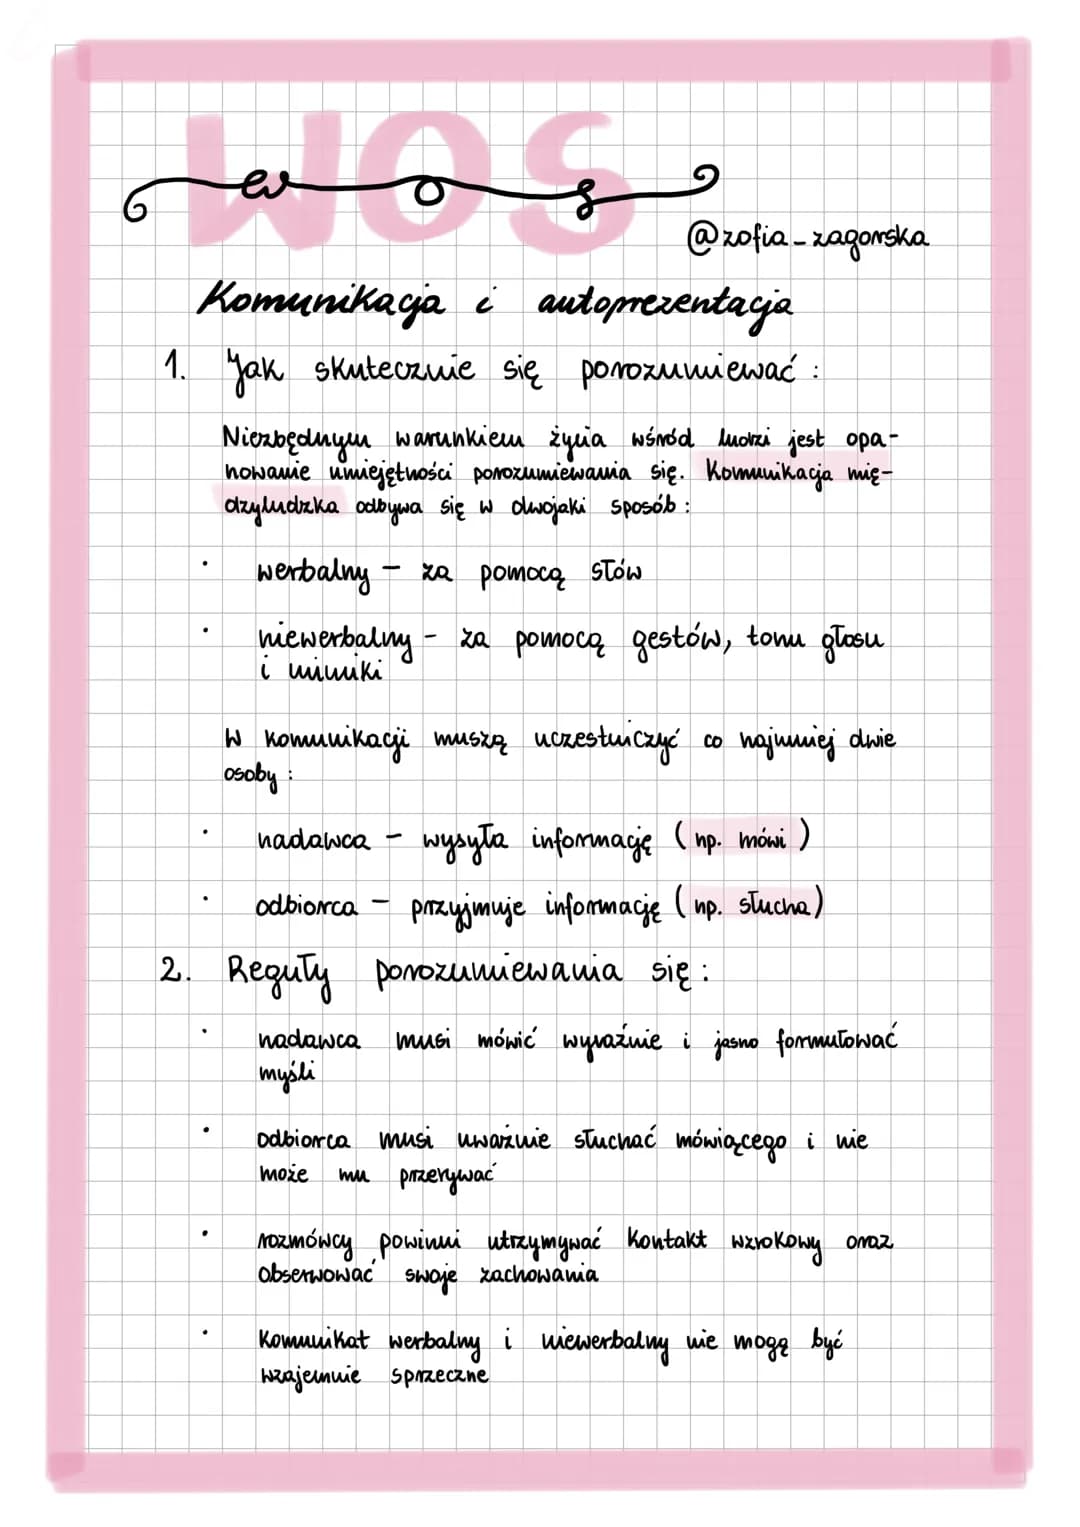 WOS
w o s
@zofia_zagorska
Komunikacja i autoprezentacja
1. Jak skutecznie się porozumiewać :
Niezbędnym warunkiem życia wśród ludzi jest opa-
nowanie umiejętności porozumiewania się. Komunikacja mię-
dzyludzka odbywa się w dwojaki sposób :
· werbalny - za pomocą słów
· niewerbalny - za pomocą gestów, tonu głosu
i mimiki
W komunikacji muszą uczestniczyć co najmniej dwie
osoby :
· nadawca - wysyła informację ( np. mówi )
· odbiorca - przyjmuje informację ( np. słucha )
2. Reguły porozumiewania się :
· nadawca musi mówić wyraźnie i jasno formułować
myśli
· odbiorca musi uważnie słuchać mówiącego i nie
może mu przerywać
· rozmówcy powinni utrzymywać kontakt wzrokowy oraz
obserwować swoje zachowania
· komunikat werbalny i niewerbalny nie mogą być
wzajemnie sprzeczne